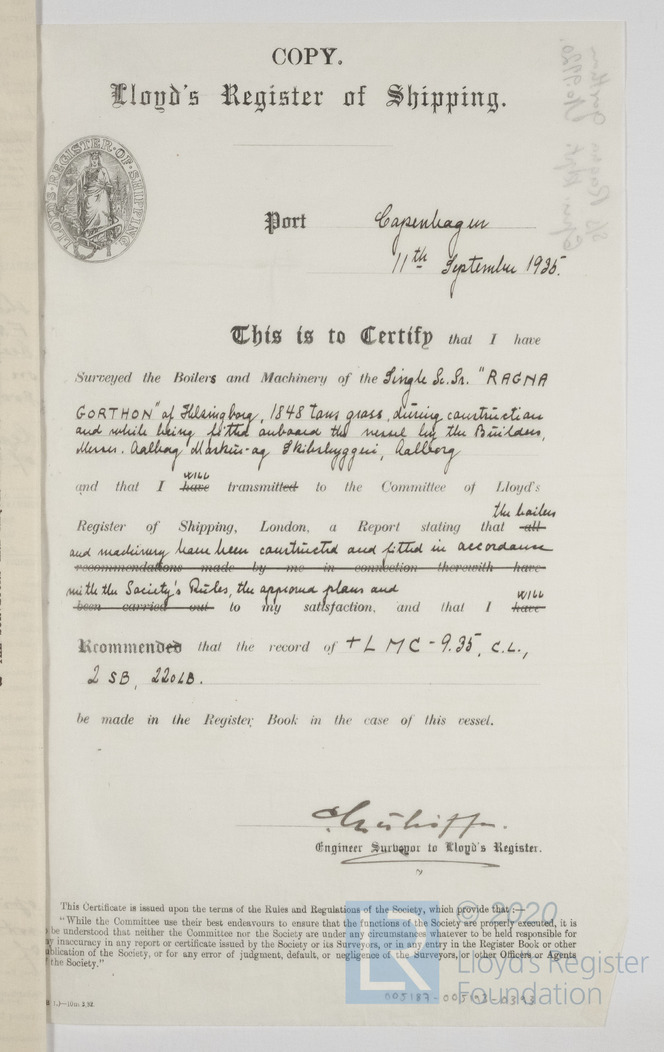 COPY.
Lloyd's Register of Shipping.
LLOYD'S·REGISTER·OF·SHIPPING
Port Copenhagen
11th September 1935.
This is to Certify that I have
Surveyed the Boilers and Machinery of the Single Sc. Sr. "RAGNA
GORTHON" of Helsingborg, 1848 tons gross, during construction
and while being fitted onboard the vessel by the Builders,
Messrs. Aalborg Maskin-og Skibsbyggeri, Aalborg
will
and that I have transmitted to the Committee of Lloyd's
the boilers
Register of Shipping, London, a Report stating that all
and machinery have been constructed and fitted in accordance
recommendations made by me in connection therewith have
with the Society's Rules, the approved plans and
will
been carried out to my satisfaction, and that I have
Recommended that the record of +LMC - 9.35, C.L.,
2 SB, 220LB.
be made in the Register Book in the case of this vessel.
Engineer Surveyor to Lloyd's Register.
This Certificate is issued upon the terms of the Rules and Regulations of the Society, which provide that :—
"While the Committee use their best endeavours to ensure that the functions of the Society are properly executed, it is
to be understood that neither the Committee nor the Society are under any circumstances whatever to be held responsible for
any inaccuracy in any report or certificate issued by the Society or its Surveyors, or in any entry in the Register Book or other
publication of the Society, or for any error of judgment, default, or negligence of the Surveyors, or other Officers or Agents
of the Society."
© 2020
LR
Lloyd's Register
Foundation
005187-005193-0393